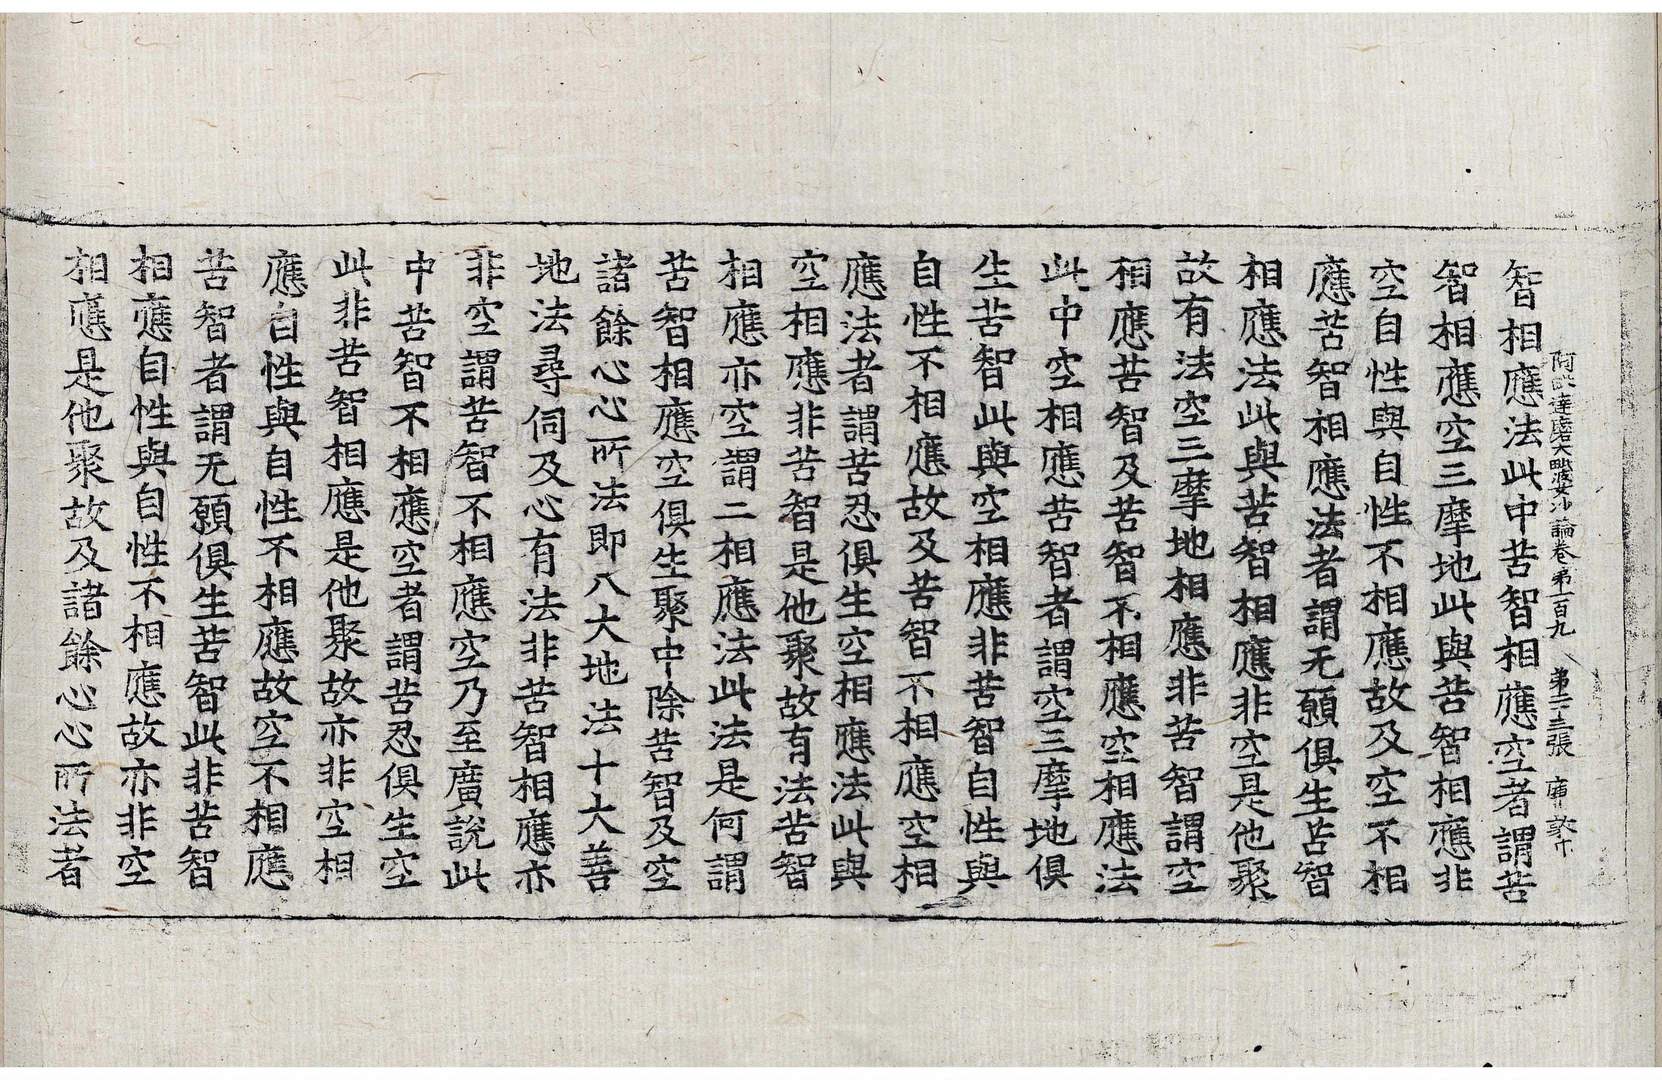 阿毗達磨大毗婆沙論卷第一百九　第二十三張　庫
智相應法此中苦智相應空者謂苦
智相應空三摩地此與苦智相應非
空自性與自性不相應故及空不相
應苦智相應法者謂无願俱生苦智
相應法此與苦智相應非空是他聚
故有法空三摩地相應非苦智謂空
相應苦智及苦智不相應空相應法
此中空相應苦智者謂空三摩地俱
生苦智此與空相應非苦智自性與
自性不相應故及苦智不相應空相
應法者謂苦忍俱生空相應法此與
空相應非苦智是他聚故有法苦智
相應亦空謂二相應法此法是何謂
苦智相應空俱生聚中除苦智及空
諸餘心心所法即八大地法十大善
地法尋伺及心有法非苦智相應亦
非空謂苦智不相應空乃至廣說此
中苦智不相應空者謂苦忍俱生空
此非苦智相應是他聚故亦非空相
應自性與自性不相應故空不相應
苦智者謂无願俱生苦智此非苦智
相應自性與自性不相應故亦非空
相應是他聚故及諸餘心心所法者